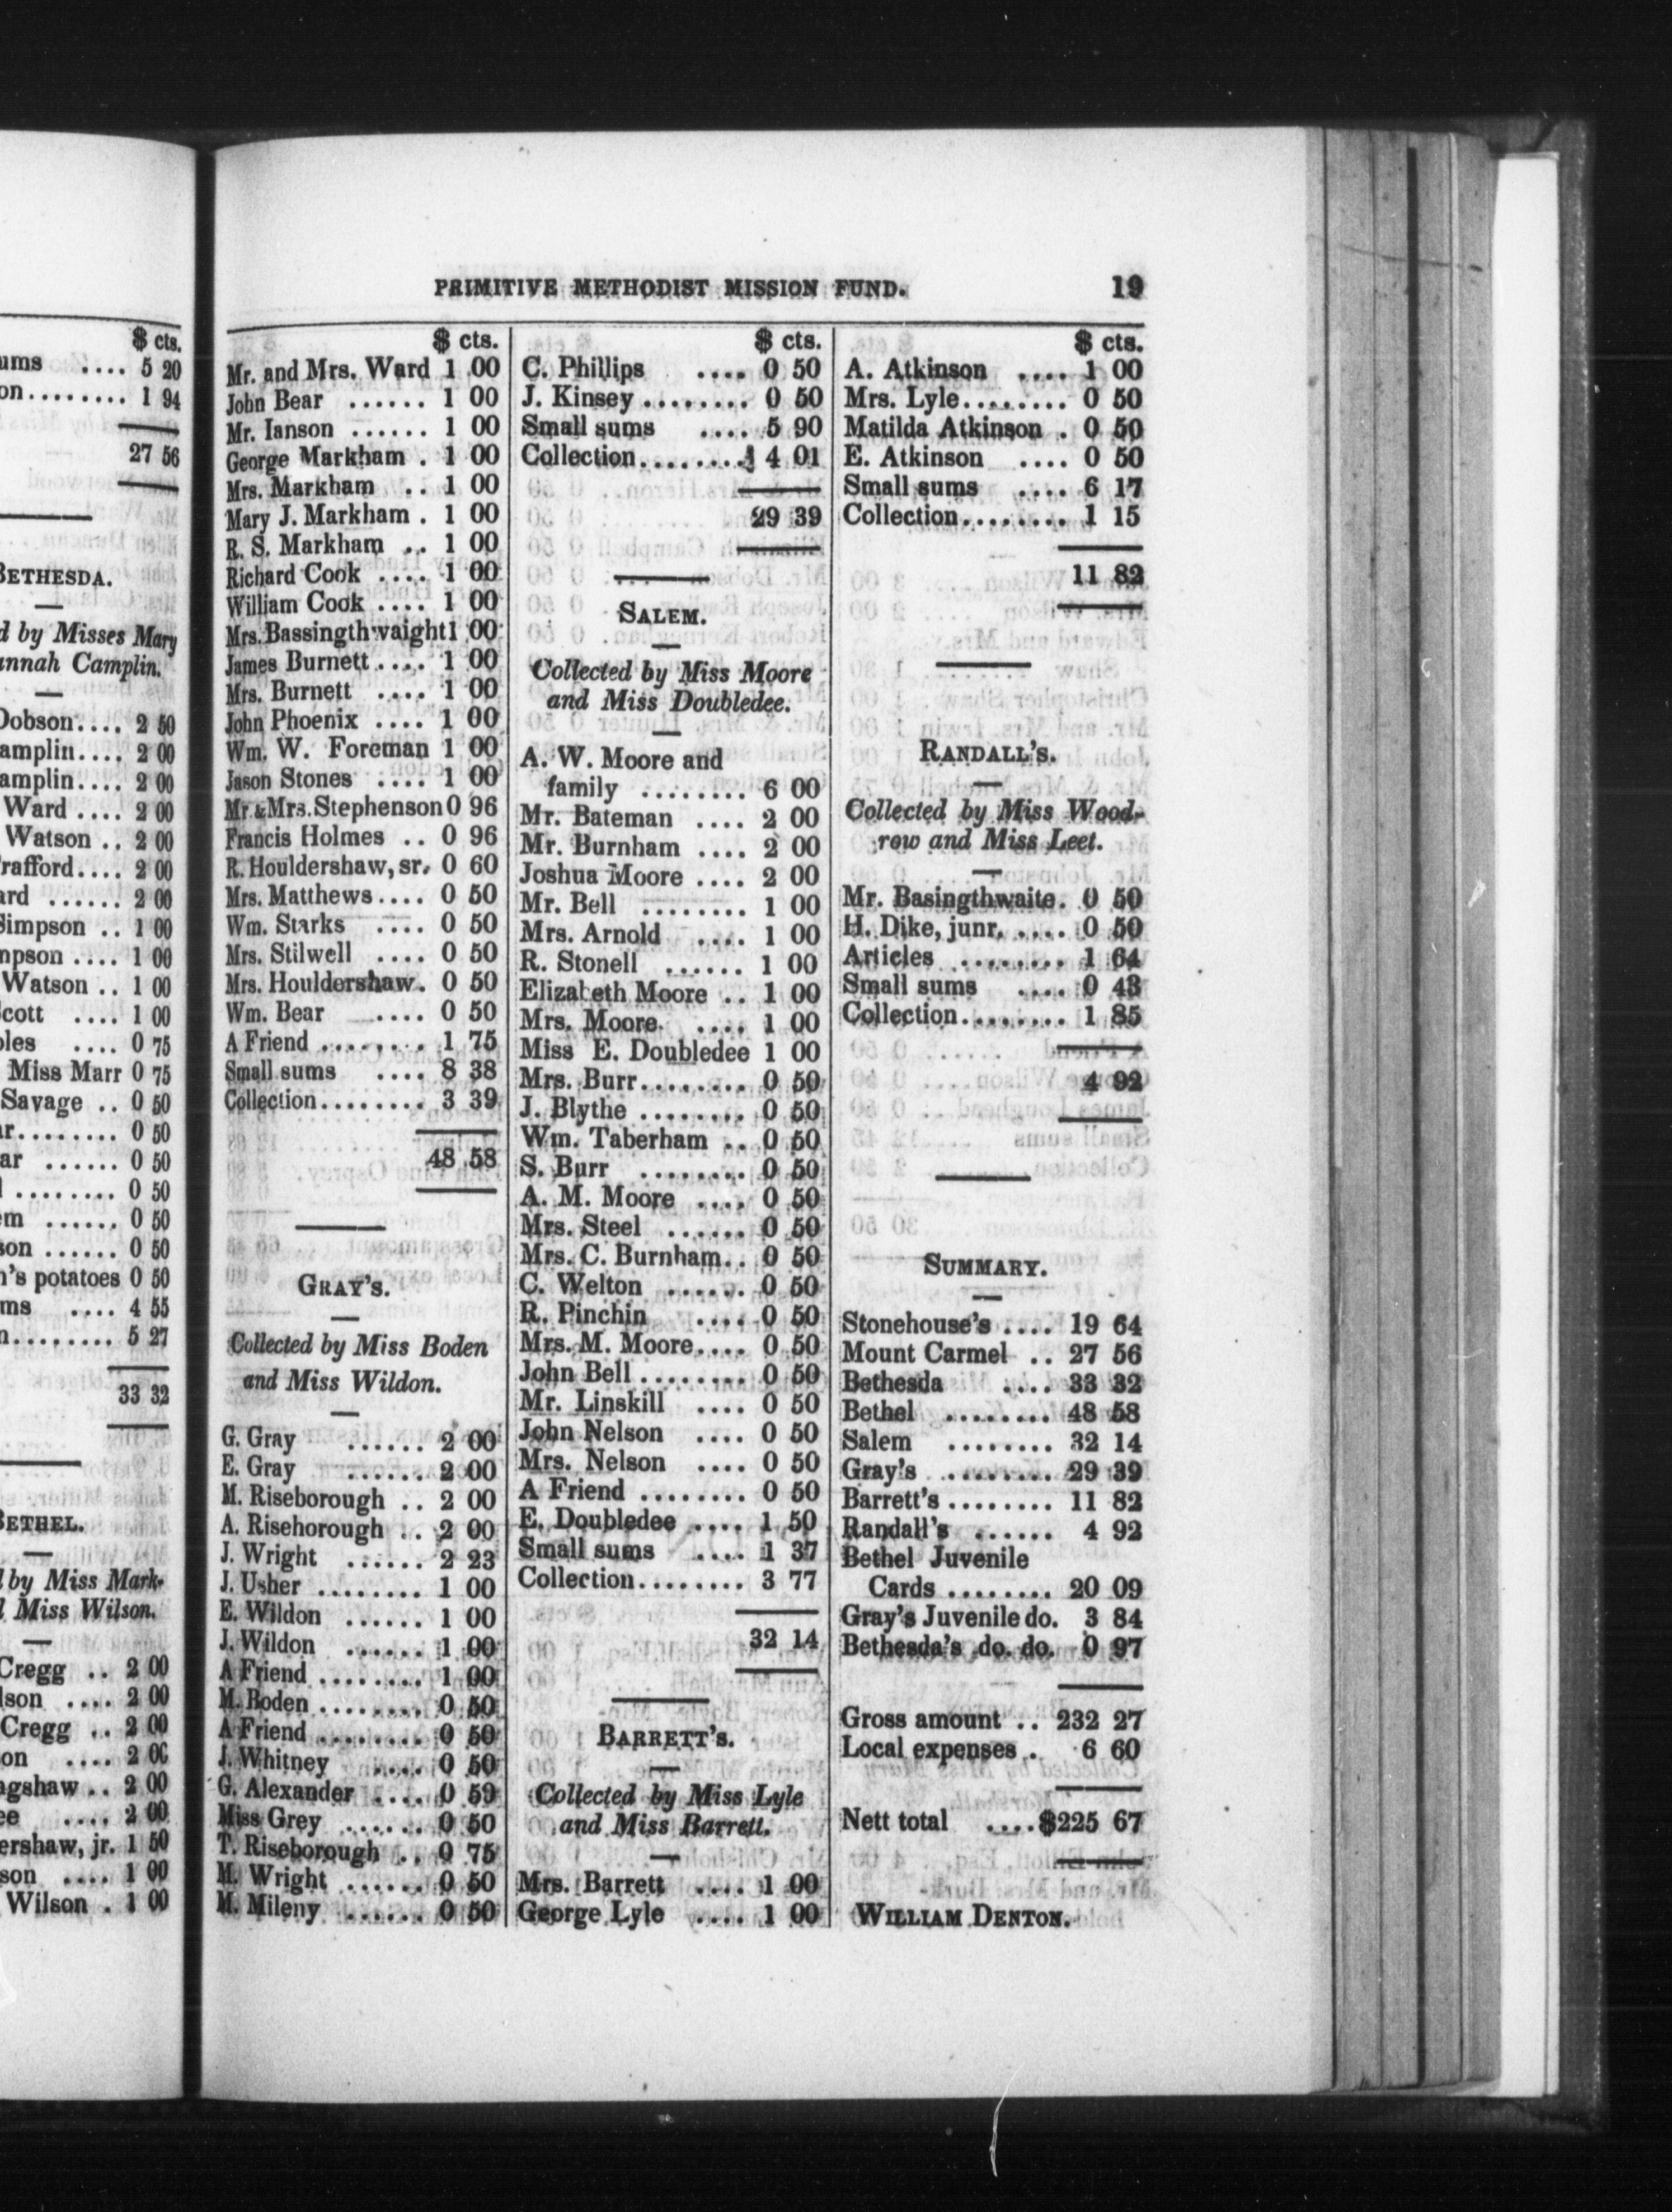 $ cts.
ums .... 5 20
on........ 1 94
27 56
BETHESDA.
d by Misses Mary
annah Camplin.
Dobson.... 2 50
amplin.... 2 00
amplin.... 2 00
Ward .... 2 00
Watson .. 2 00
rafford.... 2 00
ard ...... 2 00
Simpson .. 1 00
npson .... 1 00
Watson .. 1 00
cott .... 1 00
oles .... 0 75
Miss Marr 0 75
Savage .. 0 50
r........ 0 50
ar ...... 0 50
l ........ 0 50
em ...... 0 50
son ...... 0 50
n's potatoes 0 50
ms .... 4 55
n........ 5 27
33 32
BETHEL.
l by Miss Mark-
l Miss Wilson.
Cregg .. 2 00
lson .... 2 00
Cregg .. 2 00
on .... 2 00
ngshaw .. 2 00
ee .... 2 00
ershaw, jr. 1 50
son .... 1 00
Wilson . 1 00
PRIMITIVE METHODIST MISSION FUND. 19
$ cts.
Mr. and Mrs. Ward 1 00
John Bear ...... 1 00
Mr. Ianson ...... 1 00
George Markham . 1 00
Mrs. Markham .. 1 00
Mary J. Markham . 1 00
R. S. Markham .. 1 00
Richard Cook .... 1 00
William Cook .... 1 00
Mrs. Bassingthwaight 1 00
James Burnett .... 1 00
Mrs. Burnett .... 1 00
John Phoenix .... 1 00
Wm. W. Foreman 1 00
Jason Stones .... 1 00
Mr & Mrs. Stephenson 0 96
Francis Holmes .. 0 96
R. Houldershaw, sr. 0 60
Mrs. Matthews.... 0 50
Wm. Starks .... 0 50
Mrs. Stilwell .... 0 50
Mrs. Houldershaw. 0 50
Wm. Bear .... 0 50
A Friend ........ 1 75
Small sums .... 8 38
Collection........ 3 39
48 58
GRAY'S.
Collected by Miss Boden
and Miss Wildon.
G. Gray ...... 2 00
E. Gray ...... 2 00
M. Riseborough .. 2 00
A. Risehorough .. 2 00
J. Wright ...... 2 23
J. Usher ........ 1 00
E. Wildon ...... 1 00
J. Wildon ...... 1 00
A Friend ........ 1 00
M. Boden ........ 0 50
A Friend ........ 0 50
J. Whitney .... 0 50
G. Alexander .... 0 59
Miss Grey ...... 0 50
T. Riseborough .. 0 75
M. Wright ...... 0 50
M. Mileny ...... 0 50
$ cts.
C. Phillips .... 0 50
J. Kinsey ........ 0 50
Small sums .... 5 90
Collection........ 4 01
29 39
SALEM.
Collected by Miss Moore
and Miss Doubledee.
A. W. Moore and
family ........ 6 00
Mr. Bateman .... 2 00
Mr. Burnham .... 2 00
Joshua Moore .... 2 00
Mr. Bell ........ 1 00
Mrs. Arnold .... 1 00
R. Stonell ...... 1 00
Elizabeth Moore .. 1 00
Mrs. Moore. .... 1 00
Miss E. Doubledee 1 00
Mrs. Burr........ 0 50
J. Blythe ........ 0 50
Wm. Taberham .. 0 50
S. Burr ........ 0 50
A. M. Moore .... 0 50
Mrs. Steel ...... 0 50
Mrs. C. Burnham.. 0 50
C. Welton ...... 0 50
R. Pinchin .... 0 50
Mrs. M. Moore.... 0 50
John Bell ........ 0 50
Mr. Linskill .... 0 50
John Nelson .... 0 50
Mrs. Nelson .... 0 50
A Friend ........ 0 50
E. Doubledee .... 1 50
Small sums .... 1 37
Collection........ 3 77
32 14
BARRETT'S.
Collected by Miss Lyle
and Miss Barrett.
Mrs. Barrett .... 1 00
George Lyle .... 1 00
$ cts.
A. Atkinson .... 1 00
Mrs. Lyle........ 0 50
Matilda Atkinson . 0 50
E. Atkinson .... 0 50
Small sums .... 6 17
Collection........ 1 15
11 82
RANDALL'S.
Collected by Miss Wood-
row and Miss Leet.
Mr. Basingthwaite. 0 50
H. Dike, junr. .... 0 50
Articles ........ 1 64
Small sums .... 0 43
Collection........ 1 85
4 92
SUMMARY.
Stonehouse's .... 19 64
Mount Carmel .. 27 56
Bethesda .... 33 32
Bethel ........ 48 58
Salem ........ 32 14
Gray's ........ 29 39
Barrett's ........ 11 82
Randall's ...... 4 92
Bethel Juvenile
Cards ........ 20 09
Gray's Juvenile do. 3 84
Bethesda's do. do. 0 97
Gross amount .. 232 27
Local expenses . 6 60
Nett total .... $225 67
WILLIAM DENTON.